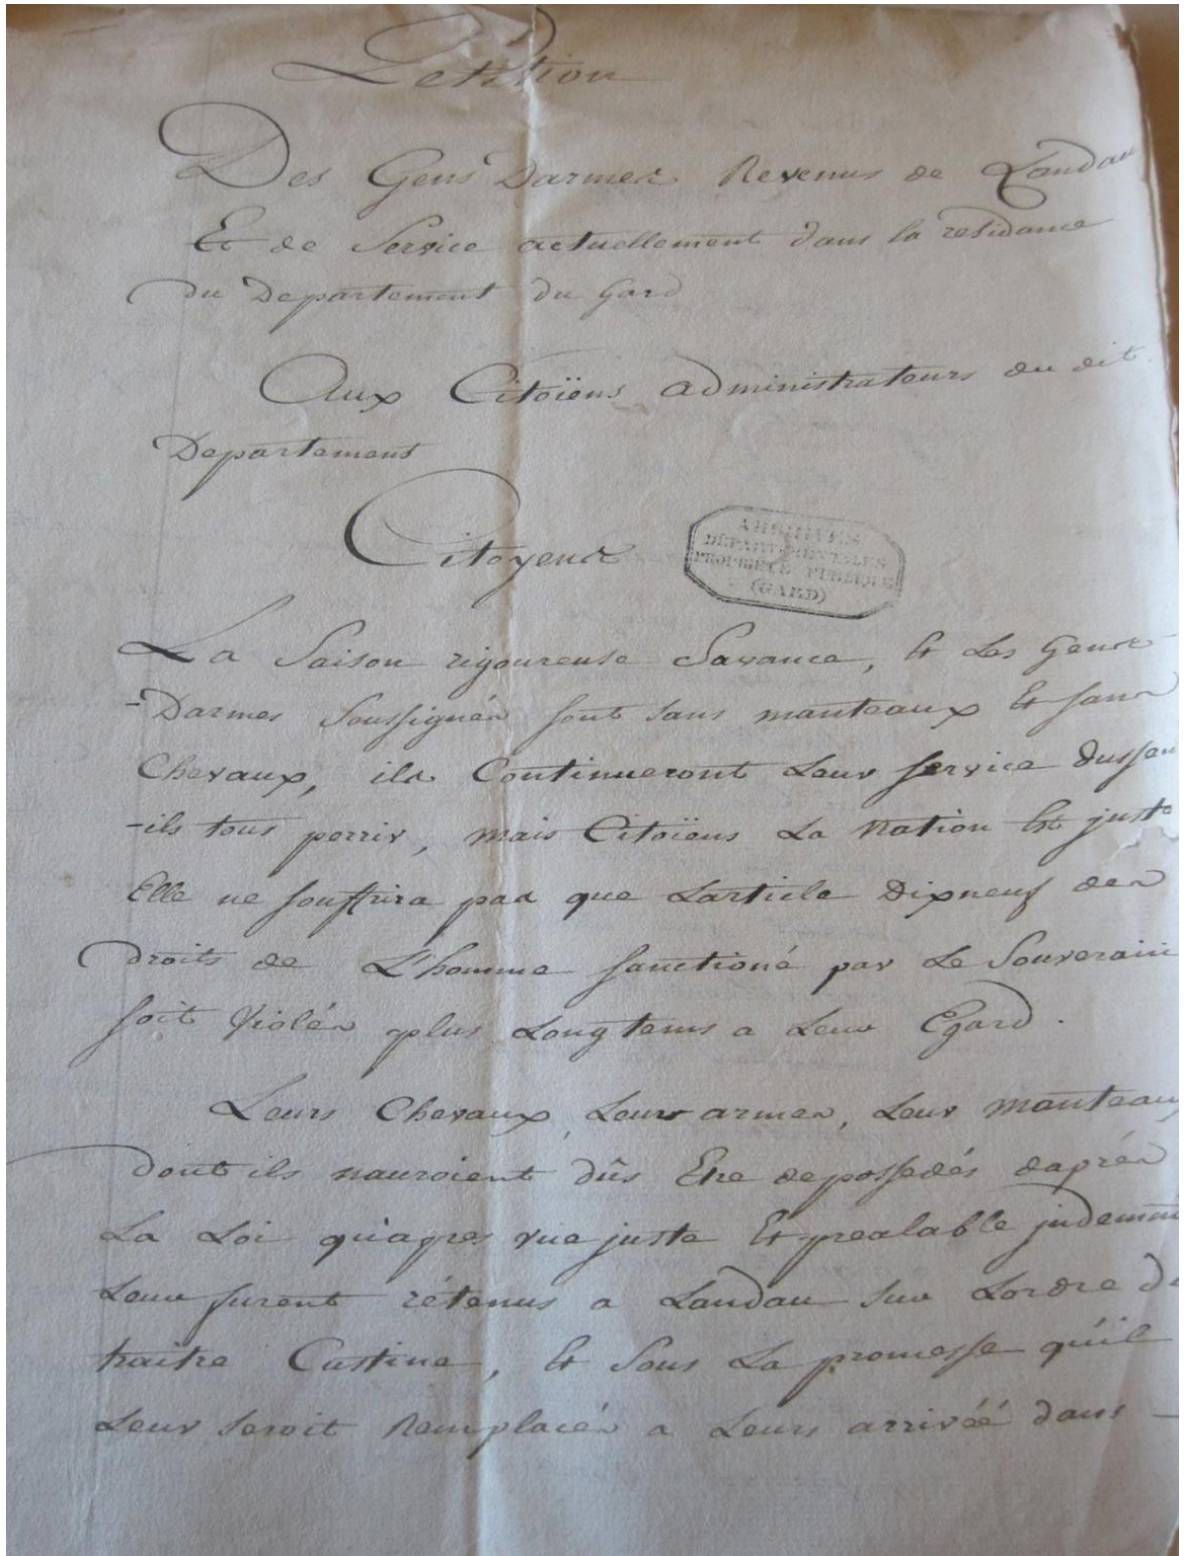 Petition
Des Gens Darmes Revenus de Landau
Et de Service actuellement dans la residance
du Departement du Gard
Aux Citoïens administrateurs du dit
Departement
Citoyens
ARCHIVES
DÉPARTEMENTALES
PROPRIÉTÉ PUBLIQUE
(GARD)
La Saison rigoureuse Savance, Et Les Gens
-Darmes Soussignés sont sans manteaux Et sans
Chevaux, ils Continueront Leur service dussent
-ils tous perrir, mais Citoïens La Nation Est juste
Elle ne souffrira pas que Larticle Dixneuf des
droits de L'homme sanctioné par Le Souverain
soit violés plus Longtems a Leur Egard.
Leurs Chevaux, Leurs armes, Leur manteaux
dont ils nauroient dûs Etre depossedés daprés
La Loi qu'apres une juste Et prealable
Leur furent rétenus a Landau sur Lordre
traitre Custine, Et Sous La promesse qu'il
Leur seroit Remplacés a Leurs arrivéé dans